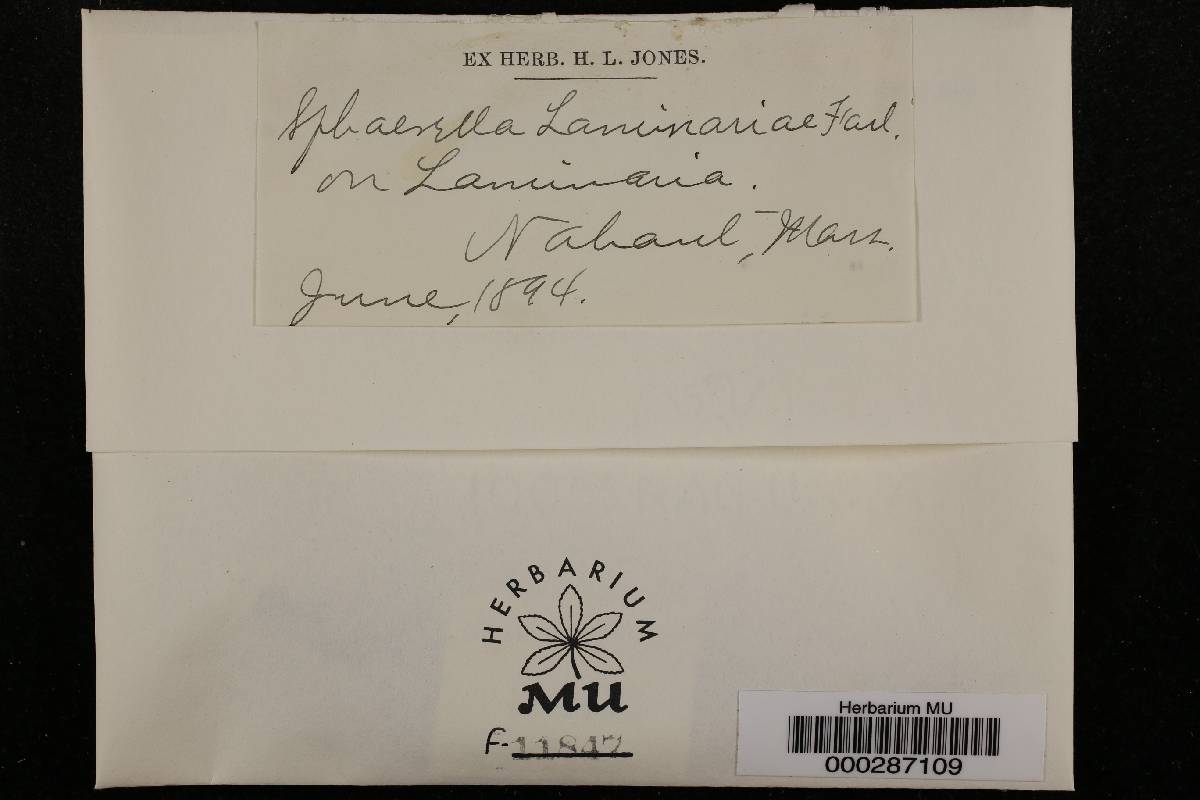 EX HERB. H. L. JONES.
Sphaerella Laminariae Farl.
on Laminaria.
Nahant, Mass.
June, 1894.
HERBARIUM
MU
F-11847
Herbarium MU
000287109